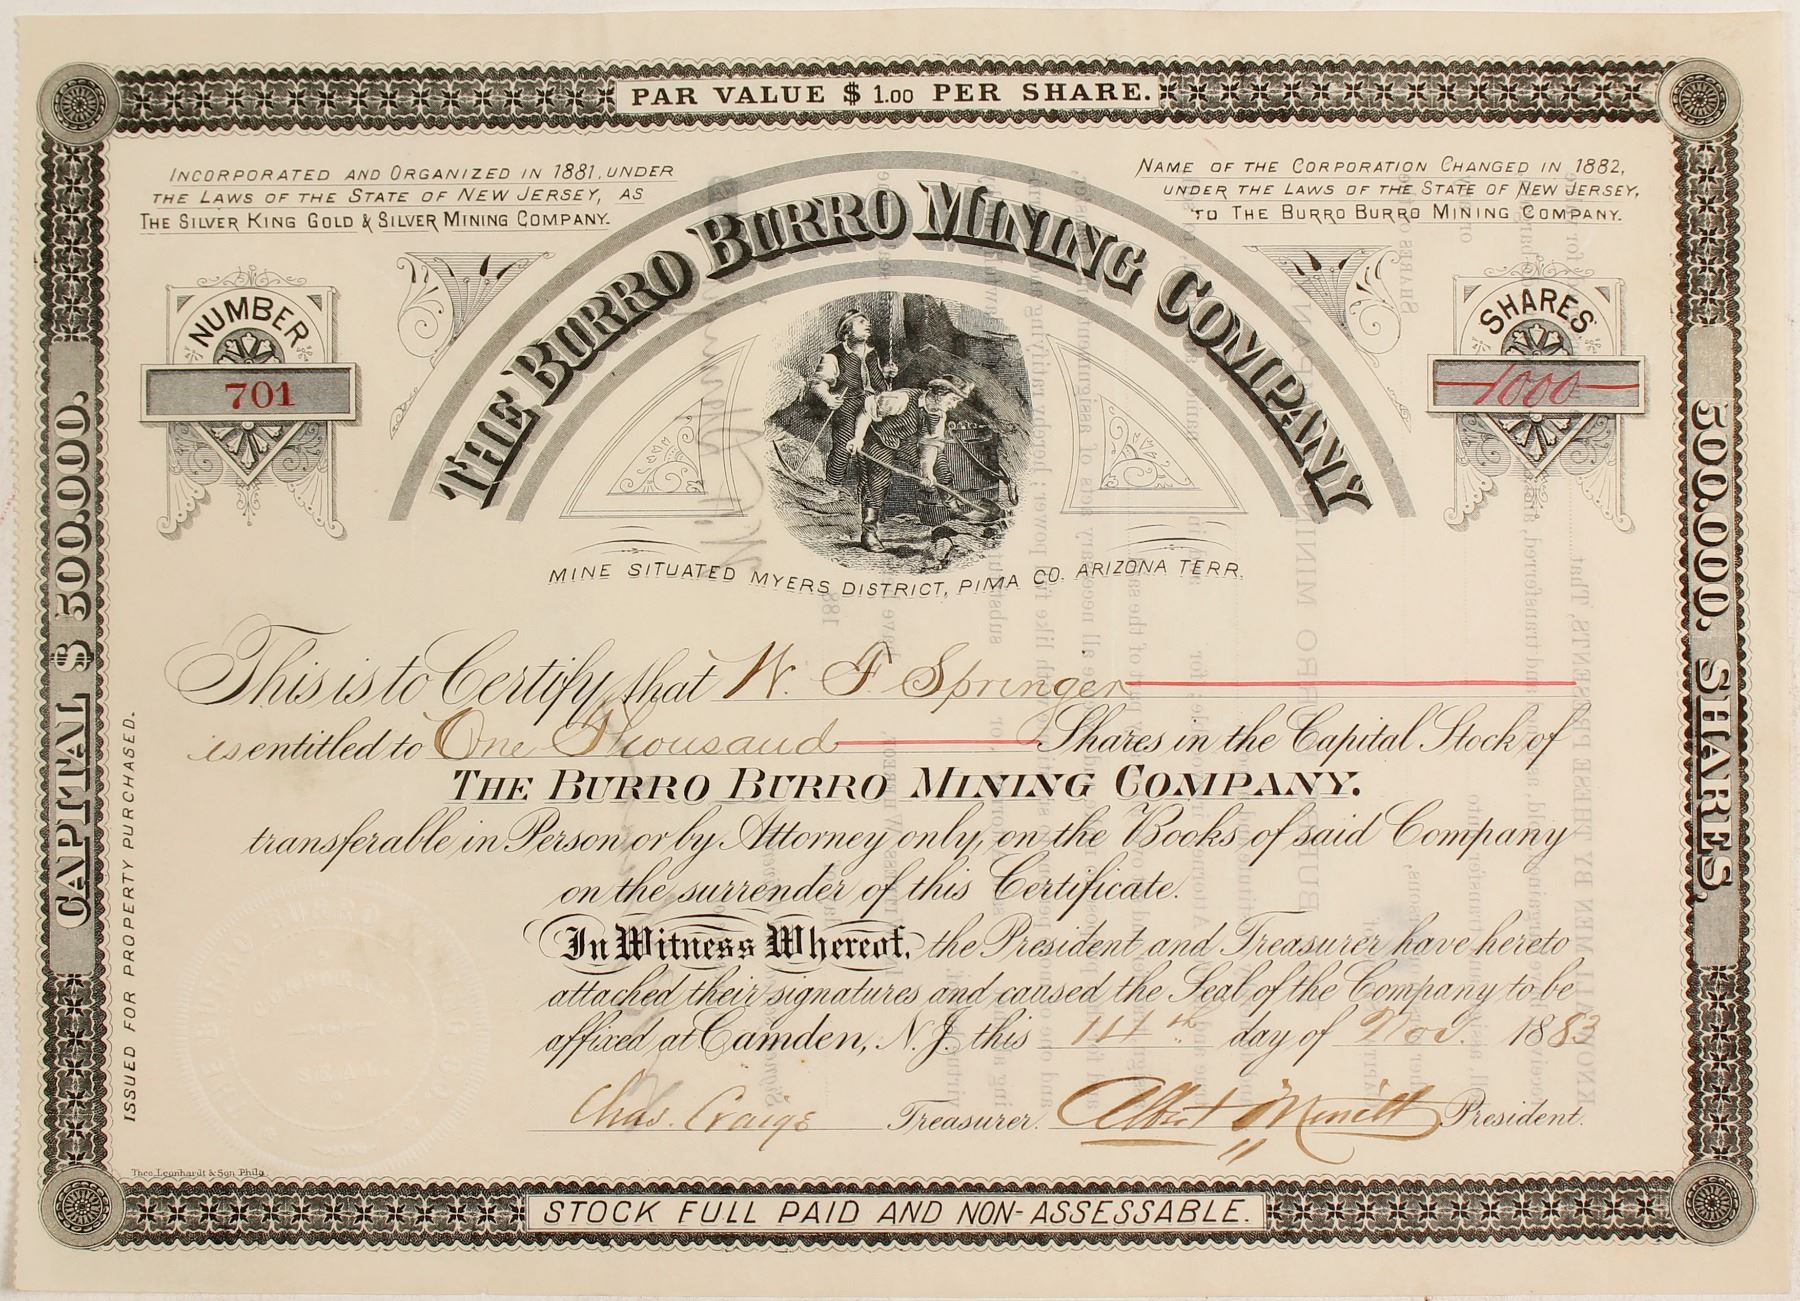 PAR VALUE $ 1.00 PER SHARE.
INCORPORATED AND ORGANIZED IN 1881, UNDER
THE LAWS OF THE STATE OF NEW JERSEY, AS
THE SILVER KING GOLD & SILVER MINING COMPANY.
NAME OF THE CORPORATION CHANGED IN 1882,
UNDER THE LAWS OF THE STATE OF NEW JERSEY,
TO THE BURRO BURRO MINING COMPANY.
THE BURRO BURRO MINING COMPANY
NUMBER
701
SHARES
1000
MINE SITUATED MYERS DISTRICT, PIMA CO. ARIZONA TERR.
CAPITAL $ 500.000.
500.000. SHARES.
This is to Certify that W. F. Springer
is entitled to One Thousand Shares in the Capital Stock of
THE BURRO BURRO MINING COMPANY.
transferable in Person or by Attorney only, on the Books of said Company
on the surrender of this Certificate.
In Witness Whereof, the President and Treasurer have hereto
attached their signatures and caused the Seal of the Company to be
affixed at Camden, N.J. this 14th day of Nov. 1883
Chas. Craige Treasurer. Albert Merritt President.
ISSUED FOR PROPERTY PURCHASED.
SEAL.
Theo. Leonhardt & Son Phila.
STOCK FULL PAID AND NON-ASSESSABLE.